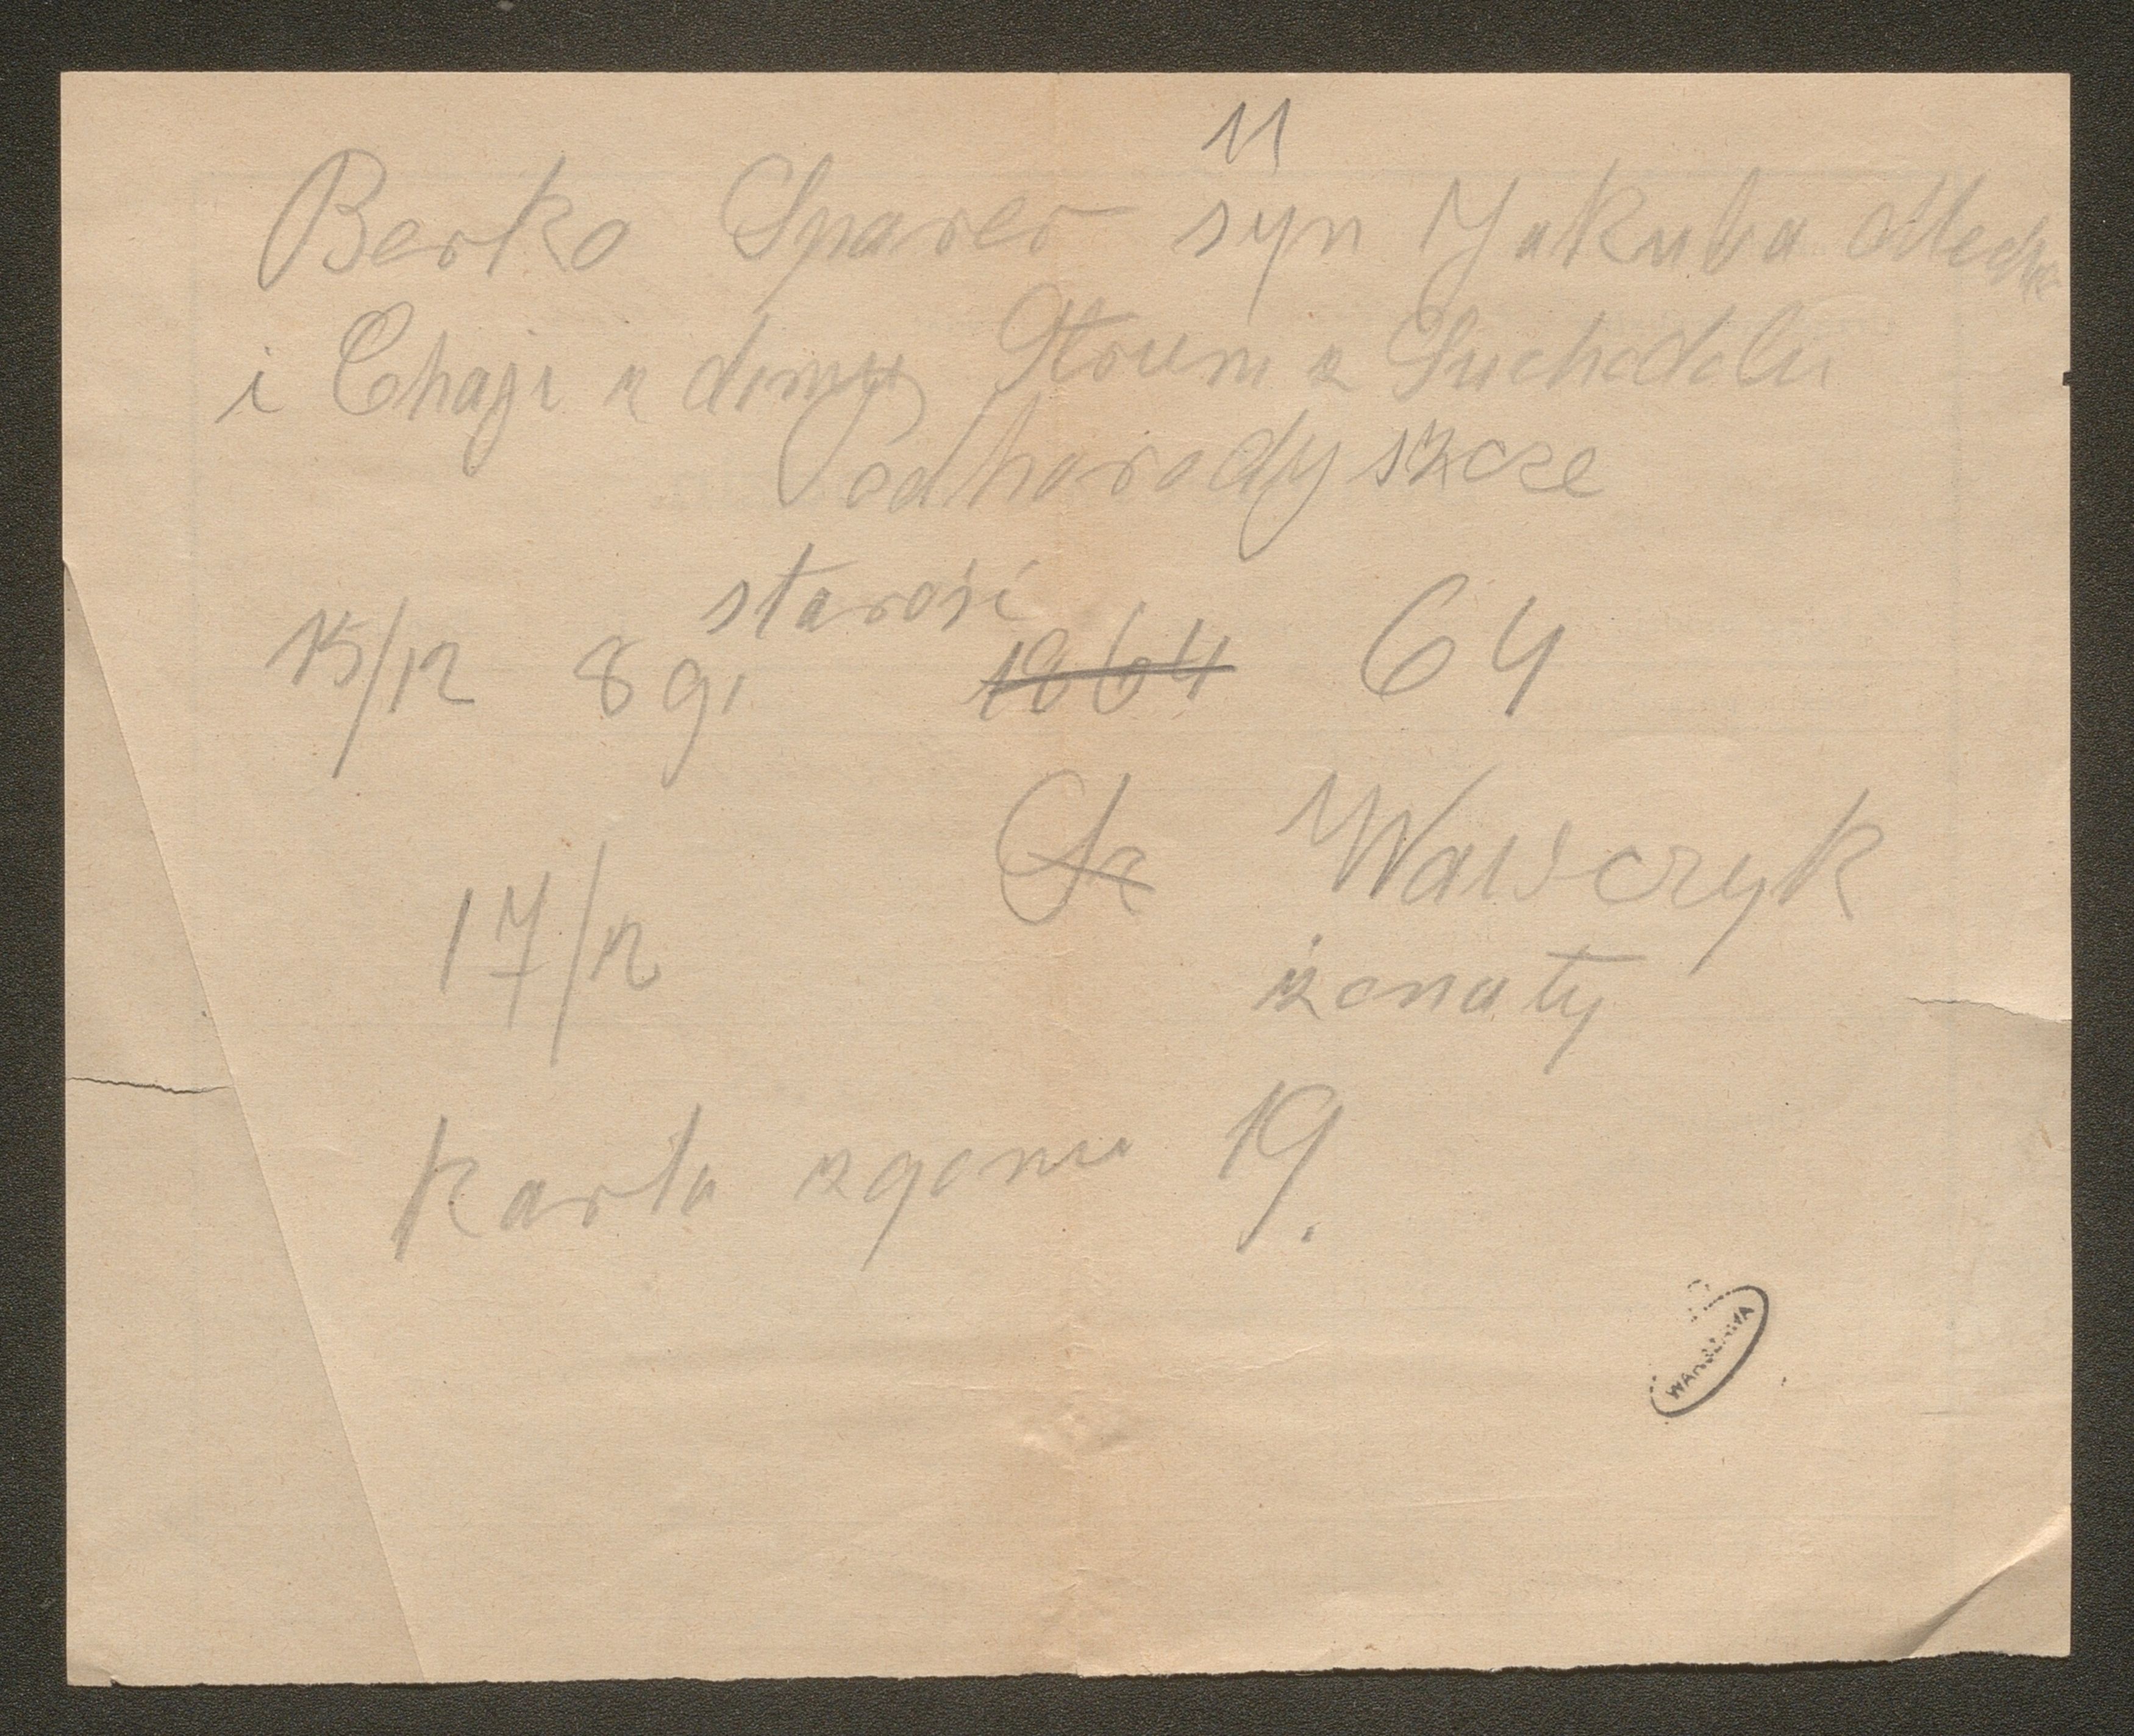 11
Berko Sparer syn Jakuba
i Chaji z domu Strum z Suchodołu
Podhorodyszcze
starość
15/12 8 g. 1864 64
Sz Wawczyk
żonaty
17/12
Karta zgonu 19.
WARSZAWA